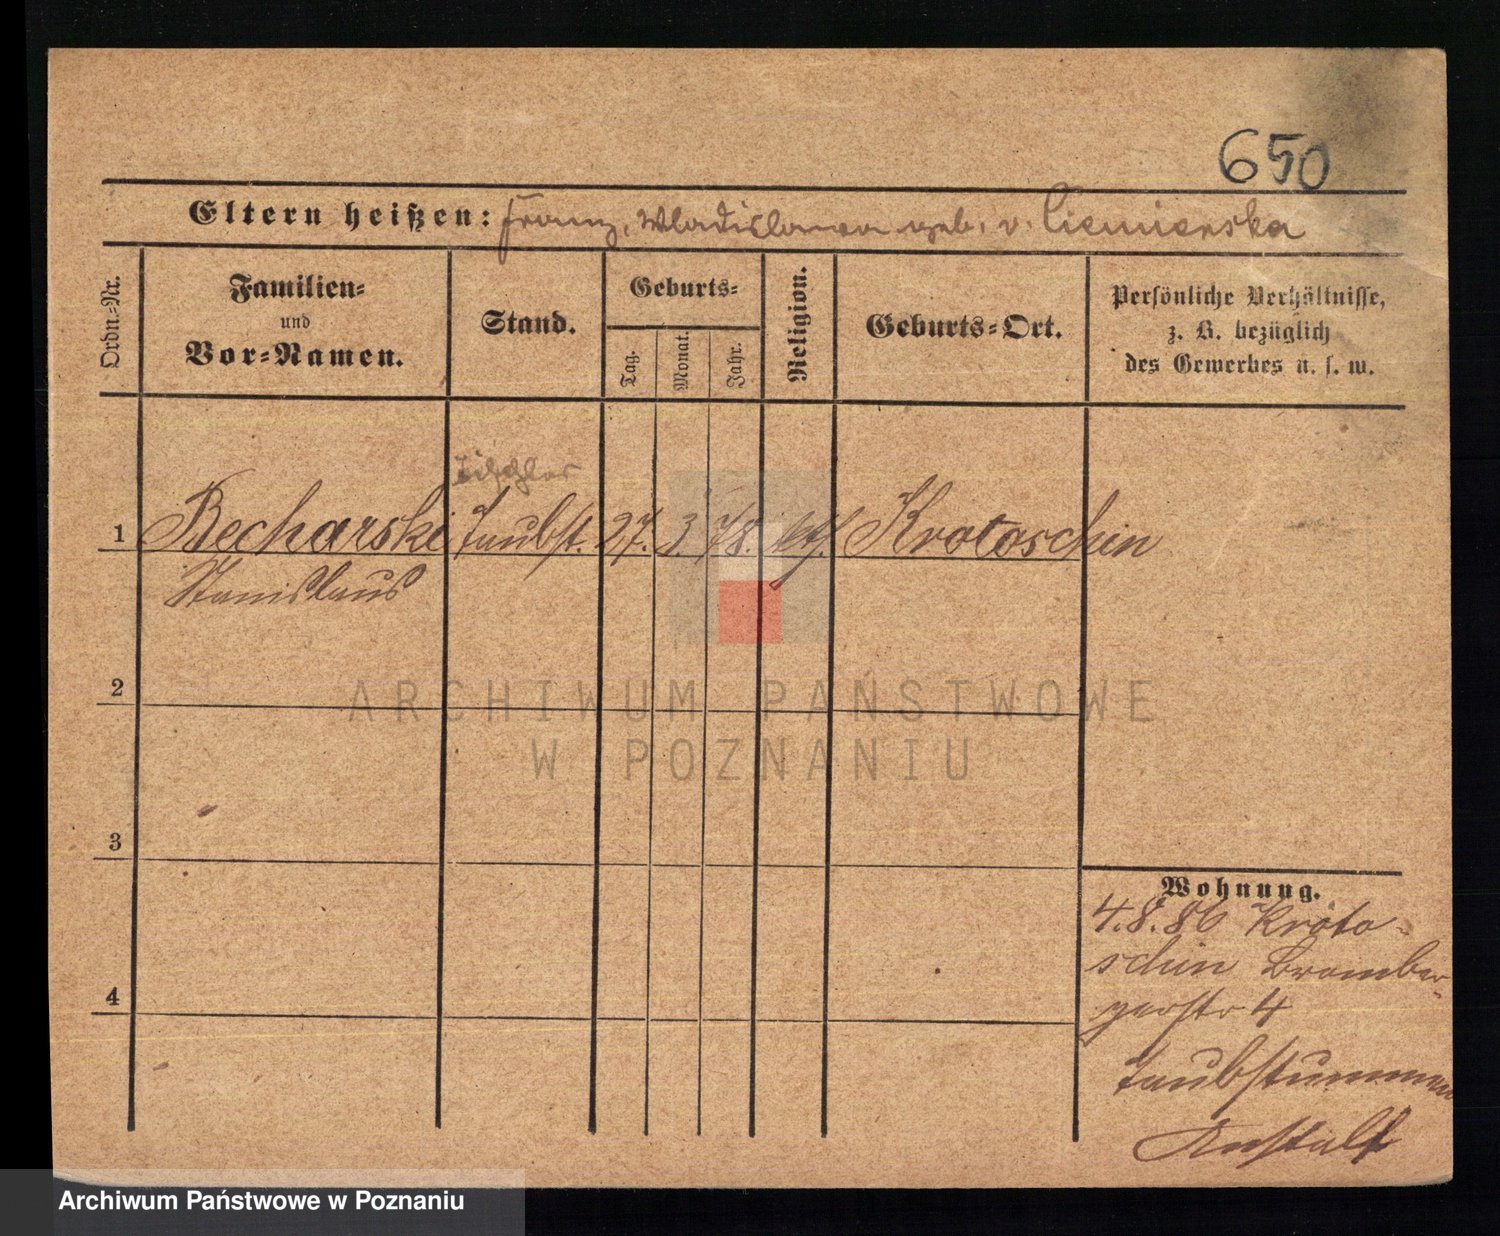 650
Eltern heißen: Franz, Wladislawa geb. v. Ciemierska
Ordn.-Nr.
Familien-
und
Vor-Namen.
Stand.
Geburts-
Tag.
Monat.
Jahr.
Religion.
Geburts-Ort.
Persönliche Verhältnisse,
z. B. bezüglich
des Gewerbes u. s. w.
Tischler
1 Becharski Taubst. 27. 3. 78. kth. Krotoschin
Stanislaus
2
3
4
Wohnung.
4.8.86 Kroto-
schin Bromber-
gerstr 4
Taubstummen
Anstalt
ARCHIWUM PAŃSTWOWE
W POZNANIU
Archiwum Państwowe w Poznaniu